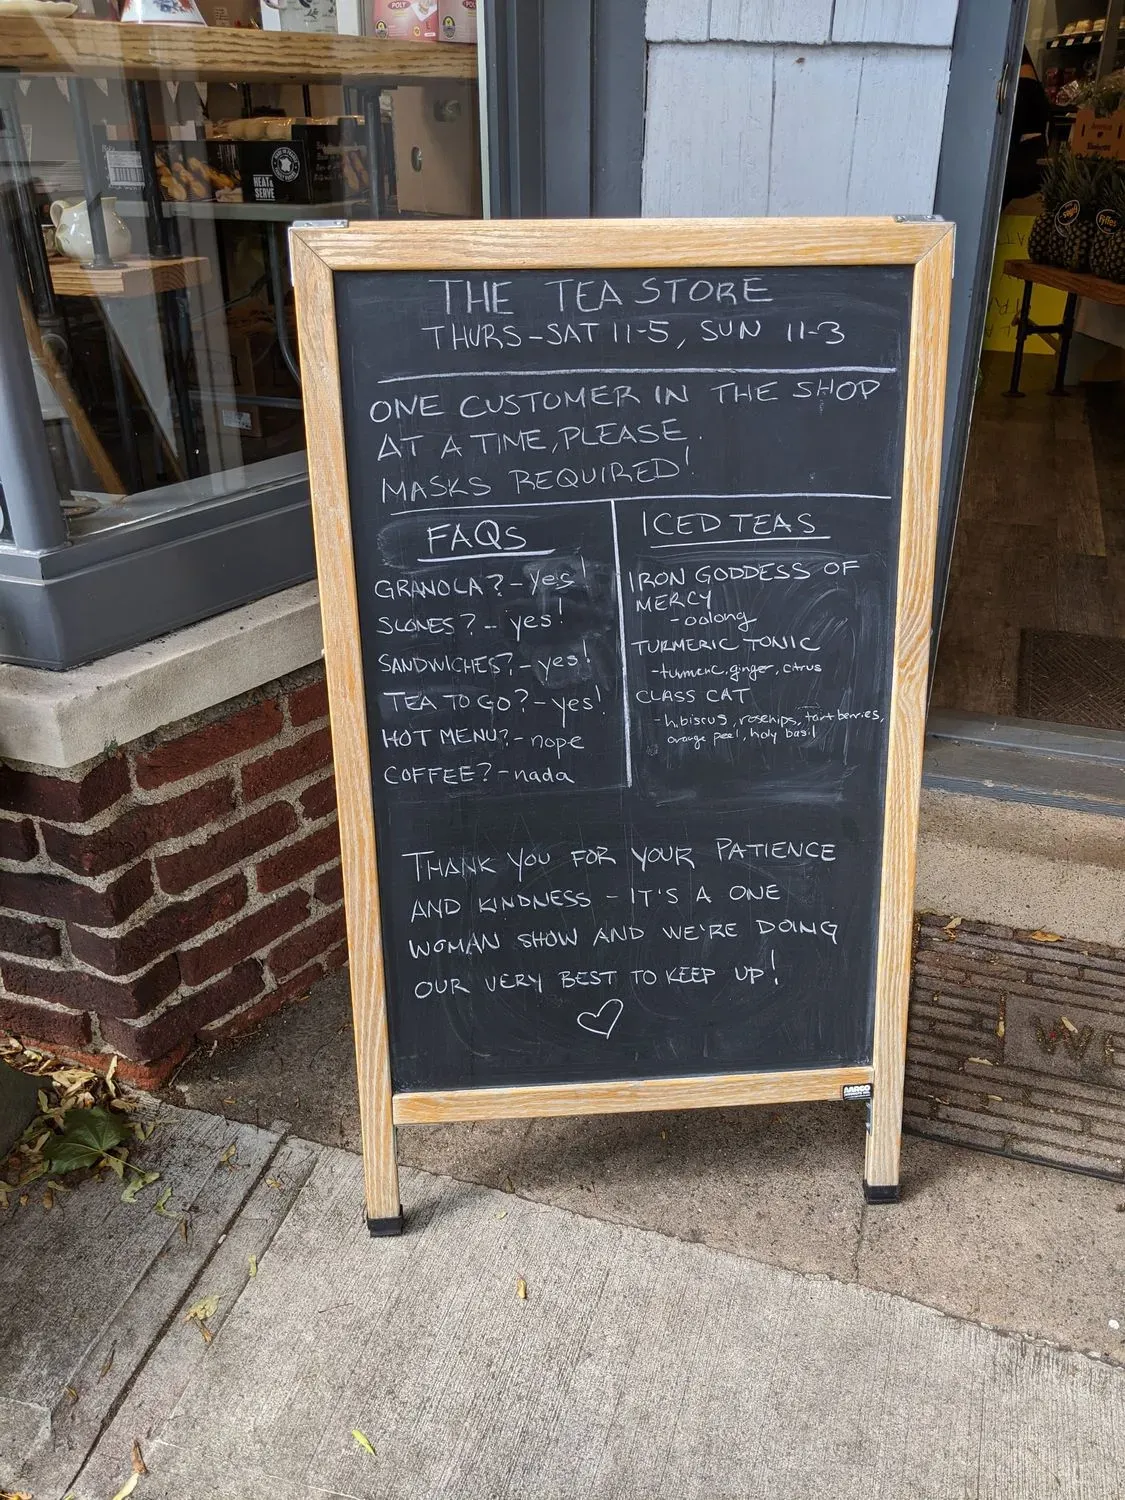 POLY
HEAT &
SERVE
THE TEA STORE
THURS-SAT 11-5, SUN 11-3
ONE CUSTOMER IN THE SHOP
AT A TIME, PLEASE.
MASKS REQUIRED!
FAQs
GRANOLA? - yes!
SCONES? - yes!
SANDWICHES? - yes!
TEA TO GO? - yes!
HOT MENU? - nope
COFFEE? - nada
ICED TEAS
IRON GODDESS OF
MERCY
- oolong
TURMERIC TONIC
- turmeric, ginger, citrus
CLASS CAT
- hibiscus, rosehips, tart berries,
orange peel, holy basil
THANK YOU FOR YOUR PATIENCE
AND KINDNESS - IT'S A ONE
WOMAN SHOW AND WE'RE DOING
OUR VERY BEST TO KEEP UP!
AARCO
WE